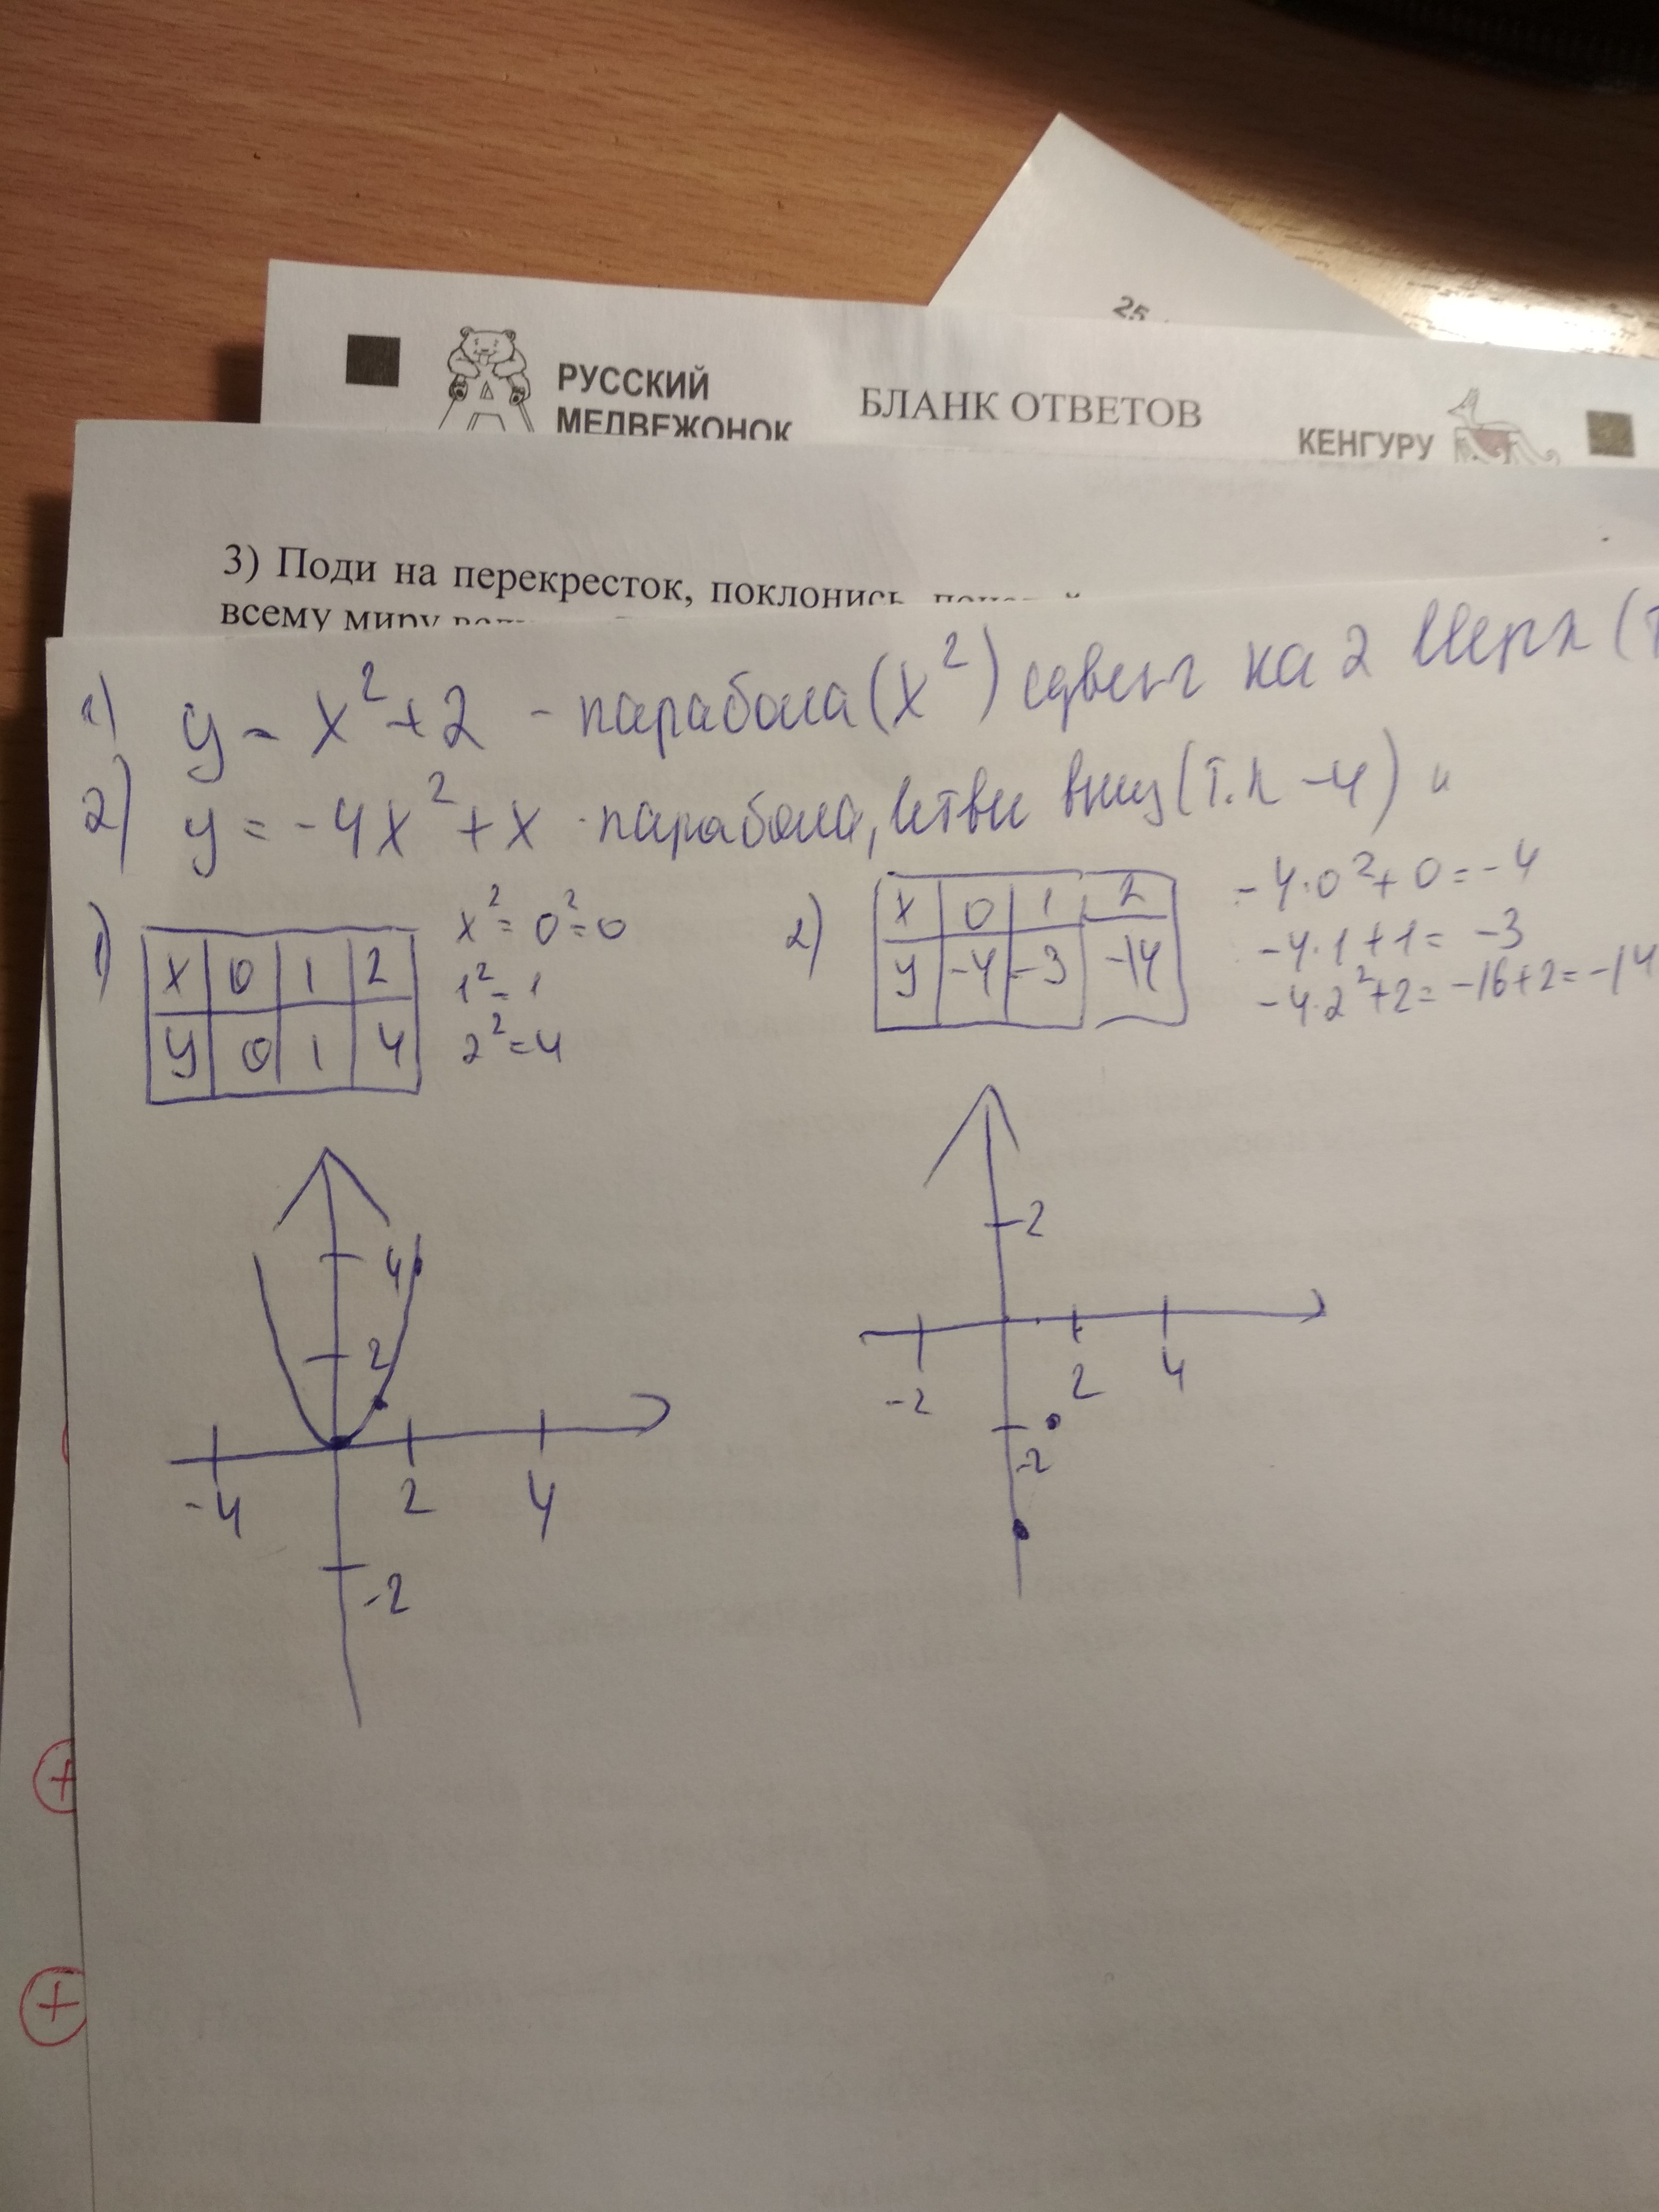 25
РУССКИЙ
МЕДВЕЖОНОК
БЛАНК ОТВЕТОВ
КЕНГУРУ
3) Поди на перекресток, поклонись,
всему миру
1) y = x² + 2 - парабола (x²) сдвиг на 2 вверх (т
2) y = -4x² + x - парабола, ветви вниз (т.к -4) и
1)
x 0 1 2
y 0 1 4
x² = 0² = 0
1² = 1
2² = 4
2)
x 0 1 2
y -4 -3 -14
-4·0² + 0 = -4
-4·1 + 1 = -3
-4·2² + 2 = -16 + 2 = -14
4
2
-4 2 4
-2
2
-2 2 4
-2
+
+